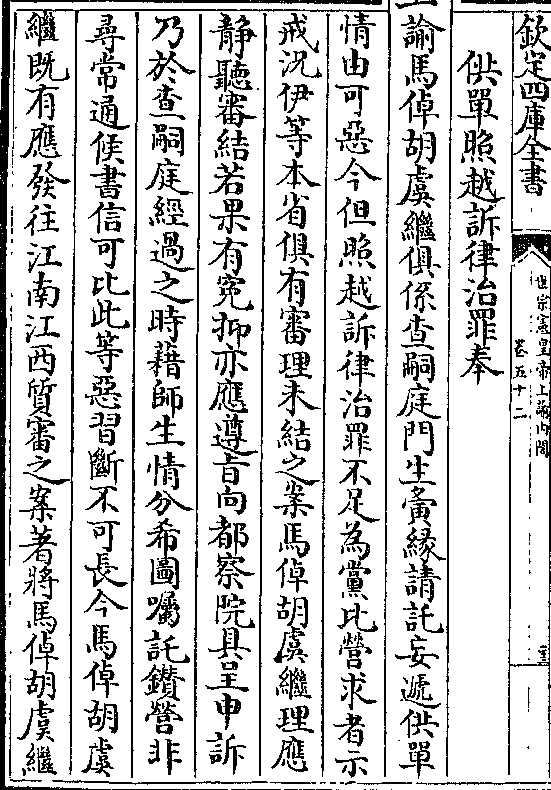 欽定四庫全書
世宗憲皇帝上諭內閣
卷五十二
供單照越訴律治罪奉
上諭馬倬胡虞繼俱係查嗣庭門生夤緣請託妄遞供單
情由可惡今但照越訴律治罪不足為黨比營求者示
戒況伊等本省俱有審理未結之案馬倬胡虞繼理應
靜聽審結若果有寃抑亦應遵旨向都察院具呈申訴
乃於查嗣庭經過之時藉師生情分希圖囑託鑽營非
尋常通候書信可比此等惡習斷不可長今馬倬胡虞
繼既有應發往江南江西質審之案著將馬倬胡虞繼